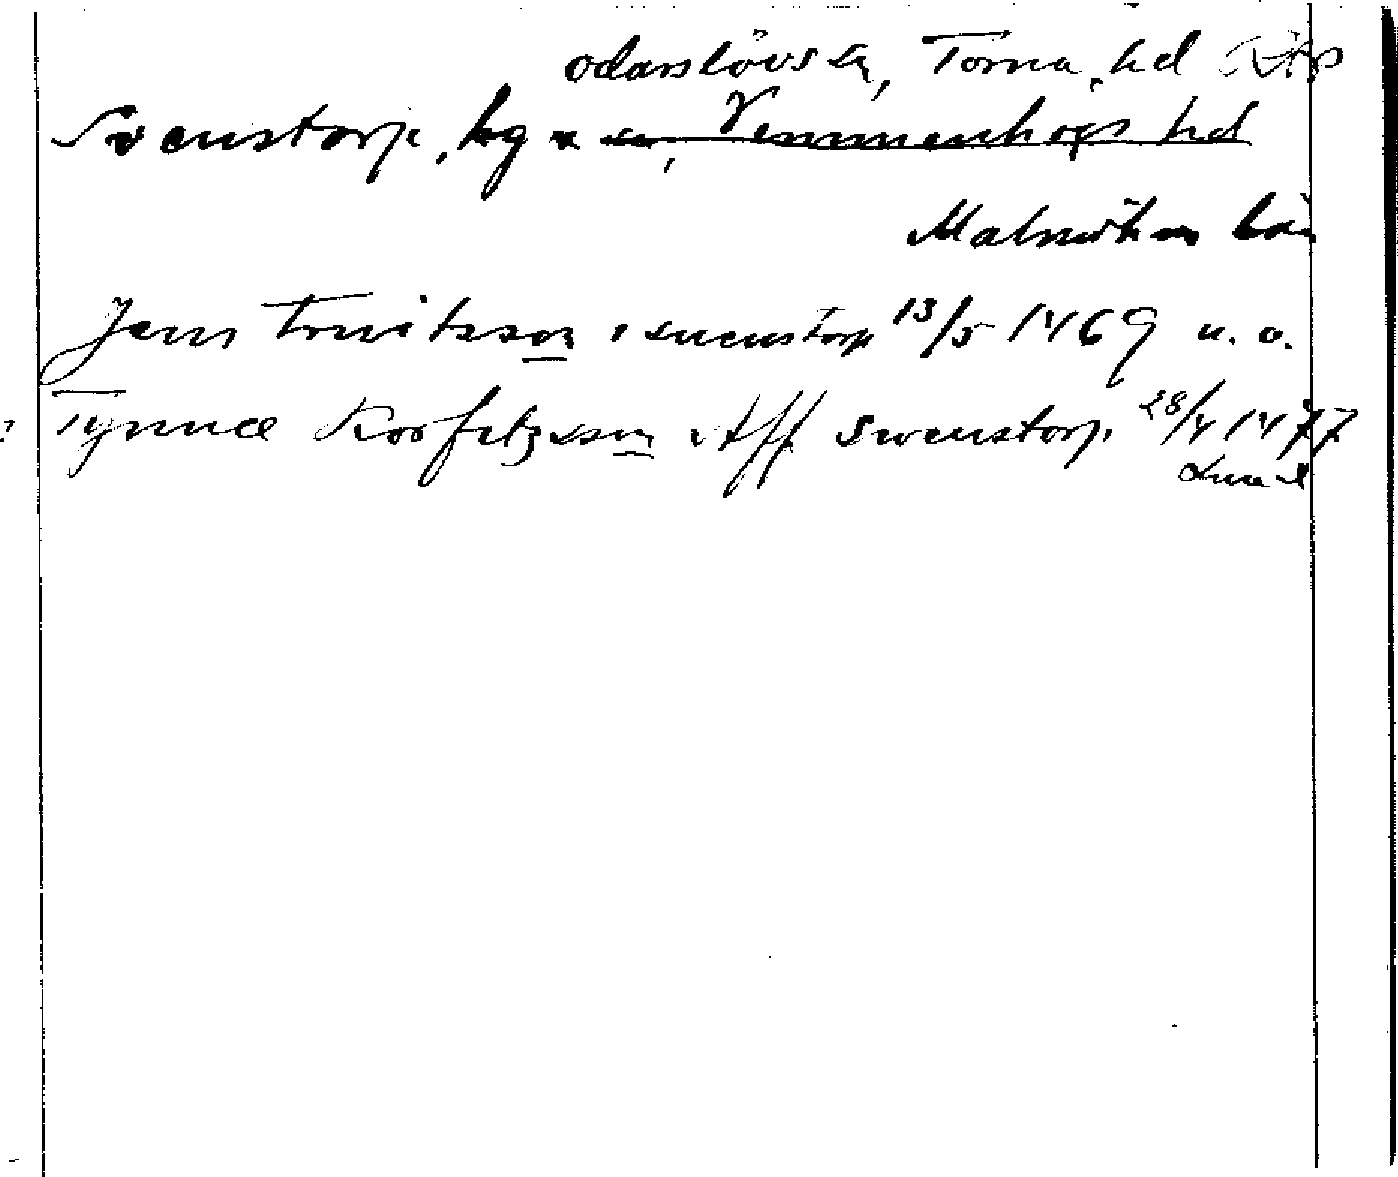 Odarslövs sn, Torna hd
Svenstorp, by sn, Vemmenhögs hd
Malmöhus län
Jens Truitsson i suenstorp 13/5 1469 u. o.
? Tynnæ Korfitzsson Aff Swenstorp 28/4 1477
Lund